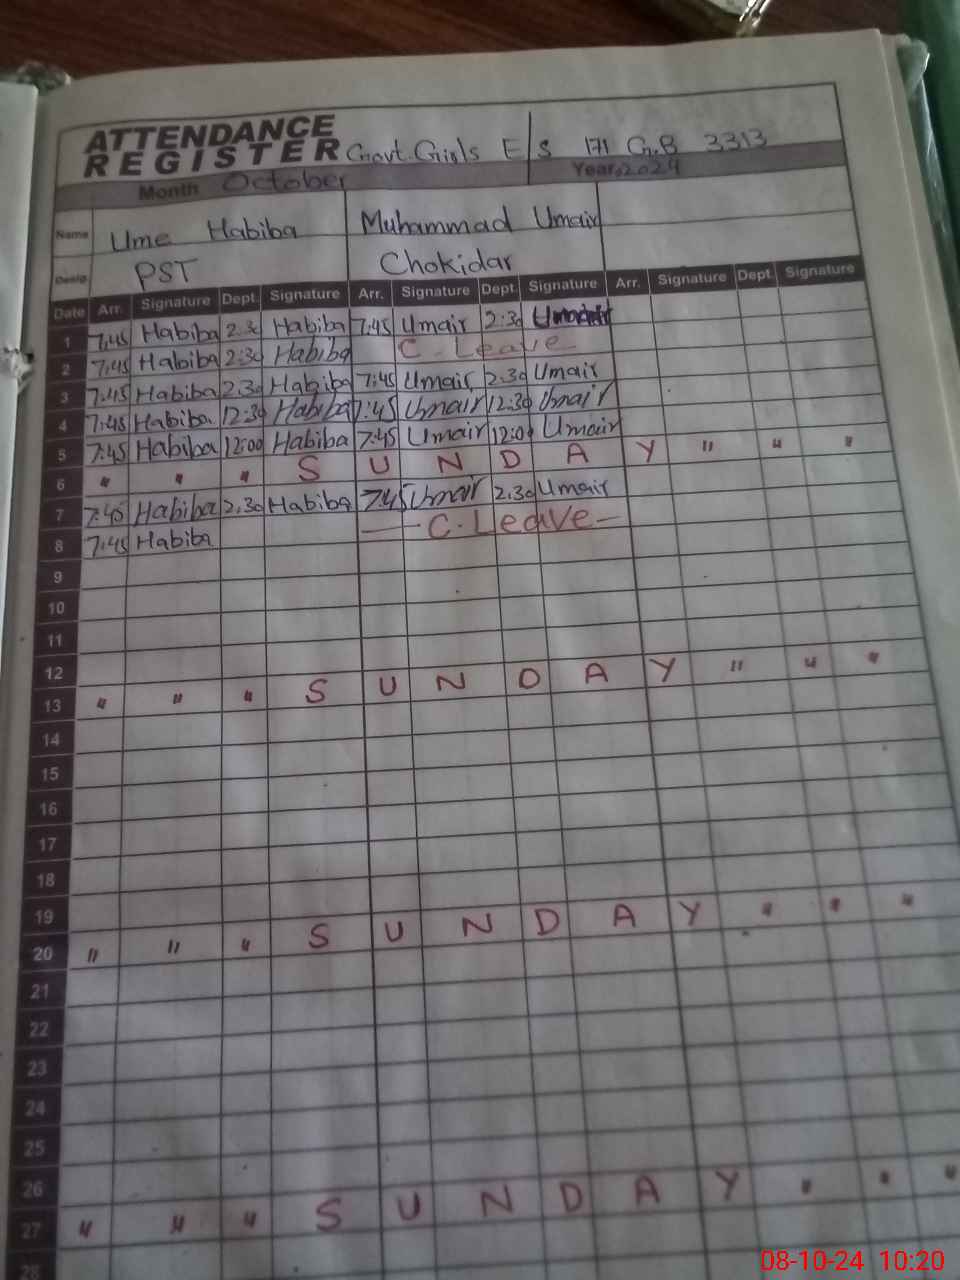 ATTENDANCE
REGISTER Govt. Girls E/S 171 G.B 3313
Month October Year. 2024
Name Ume Habiba Muhammad Umair
Desig. PST Chokidar
Date Arr. Signature Dept. Signature Arr. Signature Dept. Signature Arr. Signature Dept. Signature
1 7:45 Habiba 2:30 Habiba 7:45 Umair 2:30 Umair
2 7:45 Habiba 2:30 Habiba C. Leave
3 7:45 Habiba 2:30 Habiba 7:45 Umair 2:30 Umair
4 7:45 Habiba 12:30 Habiba 7:45 Umair 12:30 Umair
5 7:45 Habiba 12:00 Habiba 7:45 Umair 12:00 Umair
6 " " " S U N D A Y " " "
7 7:45 Habiba 2:30 Habiba 7:45 Umair 2:30 Umair
8 7:45 Habiba — C. Leave —
9
10
11
12
13 " " " S U N D A Y " " "
14
15
16
17
18
19
20 " " " S U N D A Y " " "
21
22
23
24
25
26
27 " " " S U N D A Y " " "
28
08-10-24 10:20